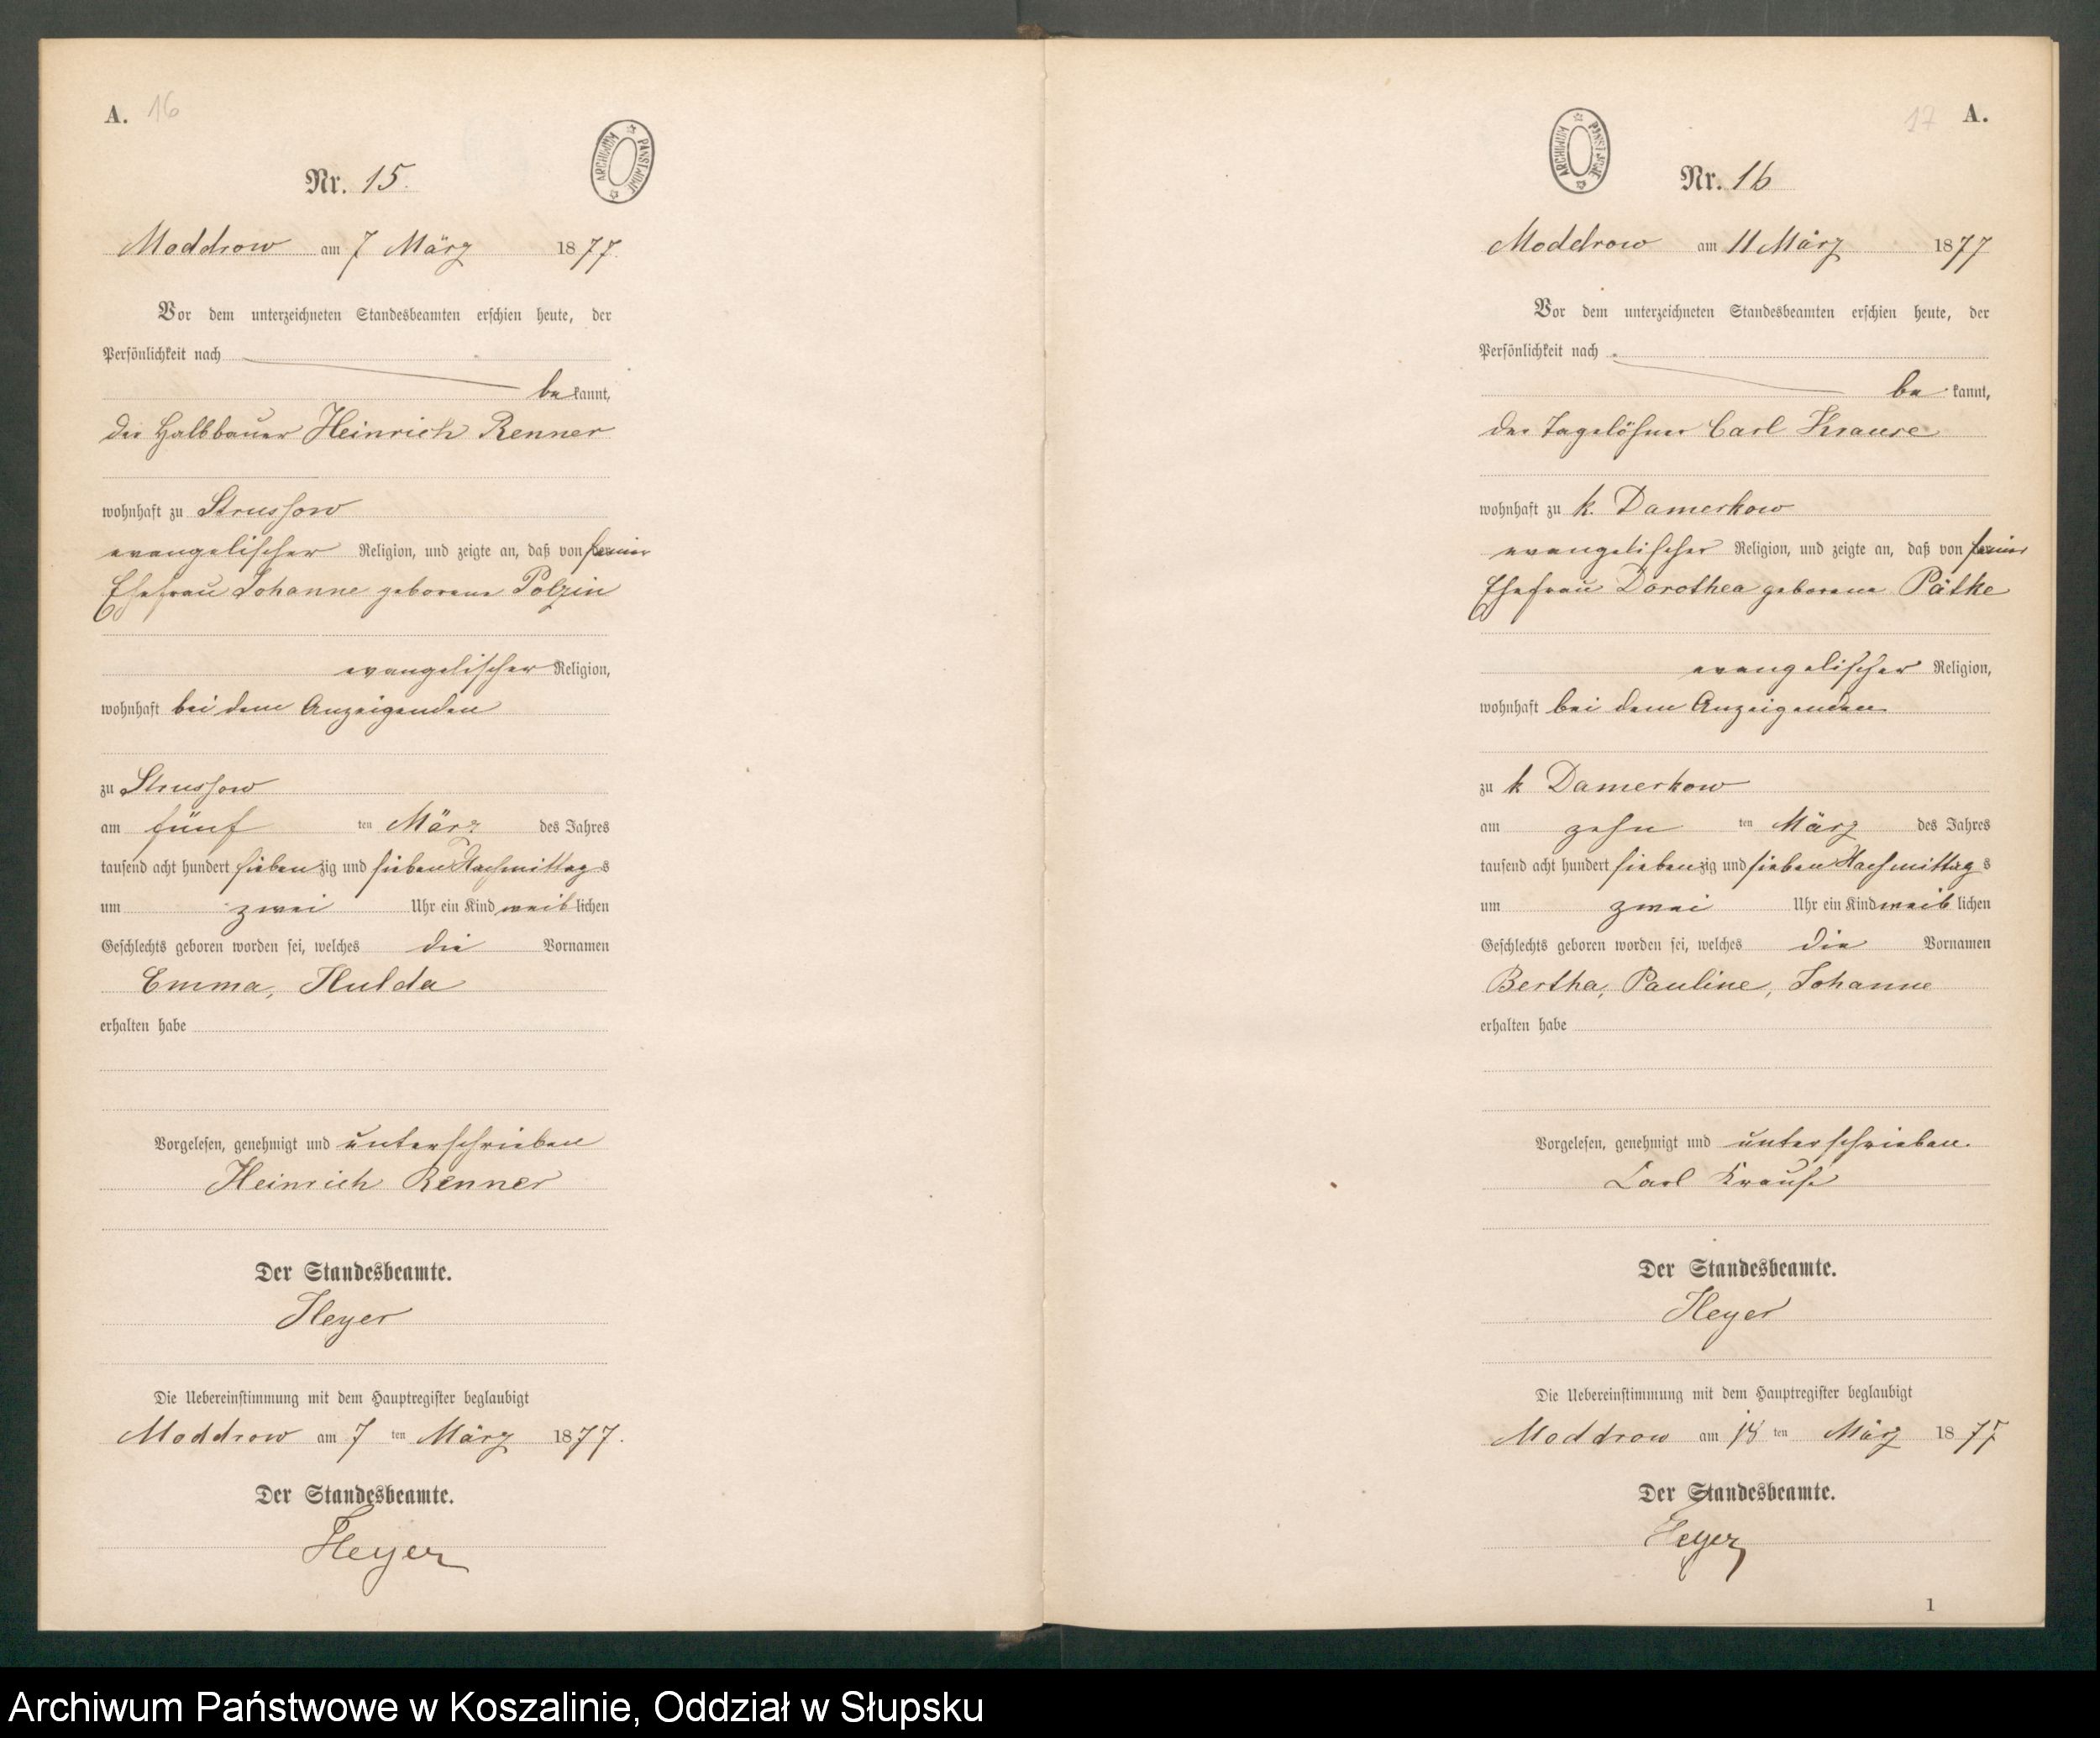 A. 16
ARCHIWUM PAŃSTWOWE
Nr. 15.
Moddrow am 7 März 1877.
Vor dem unterzeichneten Standesbeamten erschien heute, der
Persönlichkeit nach
bekannt,
der Halbbauer Heinrich Renner
wohnhaft zu Strussow
evangelischer Religion, und zeigte an, daß von seiner
Ehefrau Johanne geborene Polzin
evangelischer Religion,
wohnhaft bei dem Anzeigenden
zu Strussow
am fünf ten März des Jahres
tausend acht hundert siebenzig und sieben Nachmittags
um zwei Uhr ein Kind weiblichen
Geschlechts geboren worden sei, welches die Vornamen
Emma, Hulda
erhalten habe
Vorgelesen, genehmigt und unterschrieben
Heinrich Renner
Der Standesbeamte.
Heyer
Die Uebereinstimmung mit dem Hauptregister beglaubigt
Moddrow am 7 ten März 1877.
Der Standesbeamte.
Heyer
17 A.
ARCHIWUM PAŃSTWOWE
Nr. 16
Moddrow am 11 März 1877
Vor dem unterzeichneten Standesbeamten erschien heute, der
Persönlichkeit nach
bekannt,
der Tagelöhner Carl Krause
wohnhaft zu k. Damerkow
evangelischer Religion, und zeigte an, daß von seiner
Ehefrau Dorothea geborene Pätke
evangelischer Religion,
wohnhaft bei dem Anzeigenden
zu k Damerkow
am zehn ten März des Jahres
tausend acht hundert siebenzig und sieben Nachmittags
um zwei Uhr ein Kind weiblichen
Geschlechts geboren worden sei, welches die Vornamen
Bertha, Pauline, Johanne
erhalten habe
Vorgelesen, genehmigt und unterschrieben.
Carl Krause
Der Standesbeamte.
Heyer
Die Uebereinstimmung mit dem Hauptregister beglaubigt
Moddrow am ten März 1877
Der Standesbeamte.
Heyer
1
Archiwum Państwowe w Koszalinie, Oddział w Słupsku